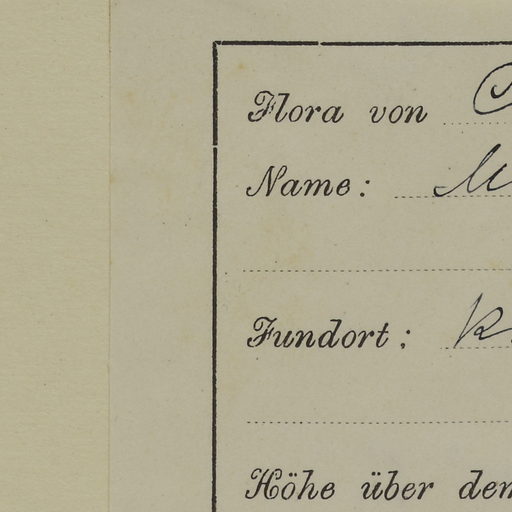 Flora von
Name: M
Fundort: K.
Höhe über dem